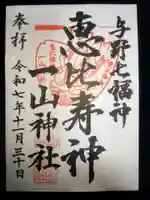 与野七福神
恵比寿神
一山神社
奉拝 令和七年十一月三十日